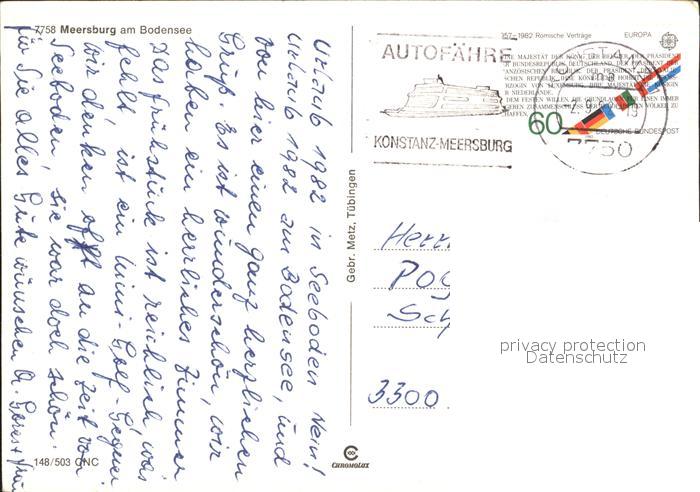 7758 Meersburg am Bodensee
Urlaub 1982 in Seeboden Nein!
Urlaub 1982 am Bodensee, und
von hier einen ganz herzlichen
Gruß. Es ist wunderschön, wir
haben ein herrliches Zimmer
Das frühstück ist reichlich, was
fehlt, ist ein Mini-Golf-Gegner
wir denken oft an die Zeit von
Seeboden, sie war doch schön.
für Sie alles Gute wünschen
148/503 CNC
Gebr. Metz, Tübingen
CHROMOLUX
AUTOFÄHRE
KONSTANZ-MEERSBURG
7750
1957–1982 Römische Verträge
EUROPA
60
DEUTSCHE BUNDESPOST
Herr
3300
privacy protection
Datenschutz